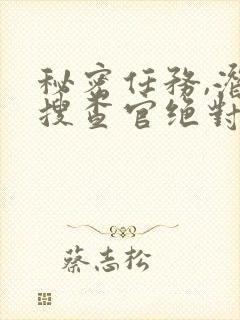 秘密任務,潛
搜查官绝對
蔡志松